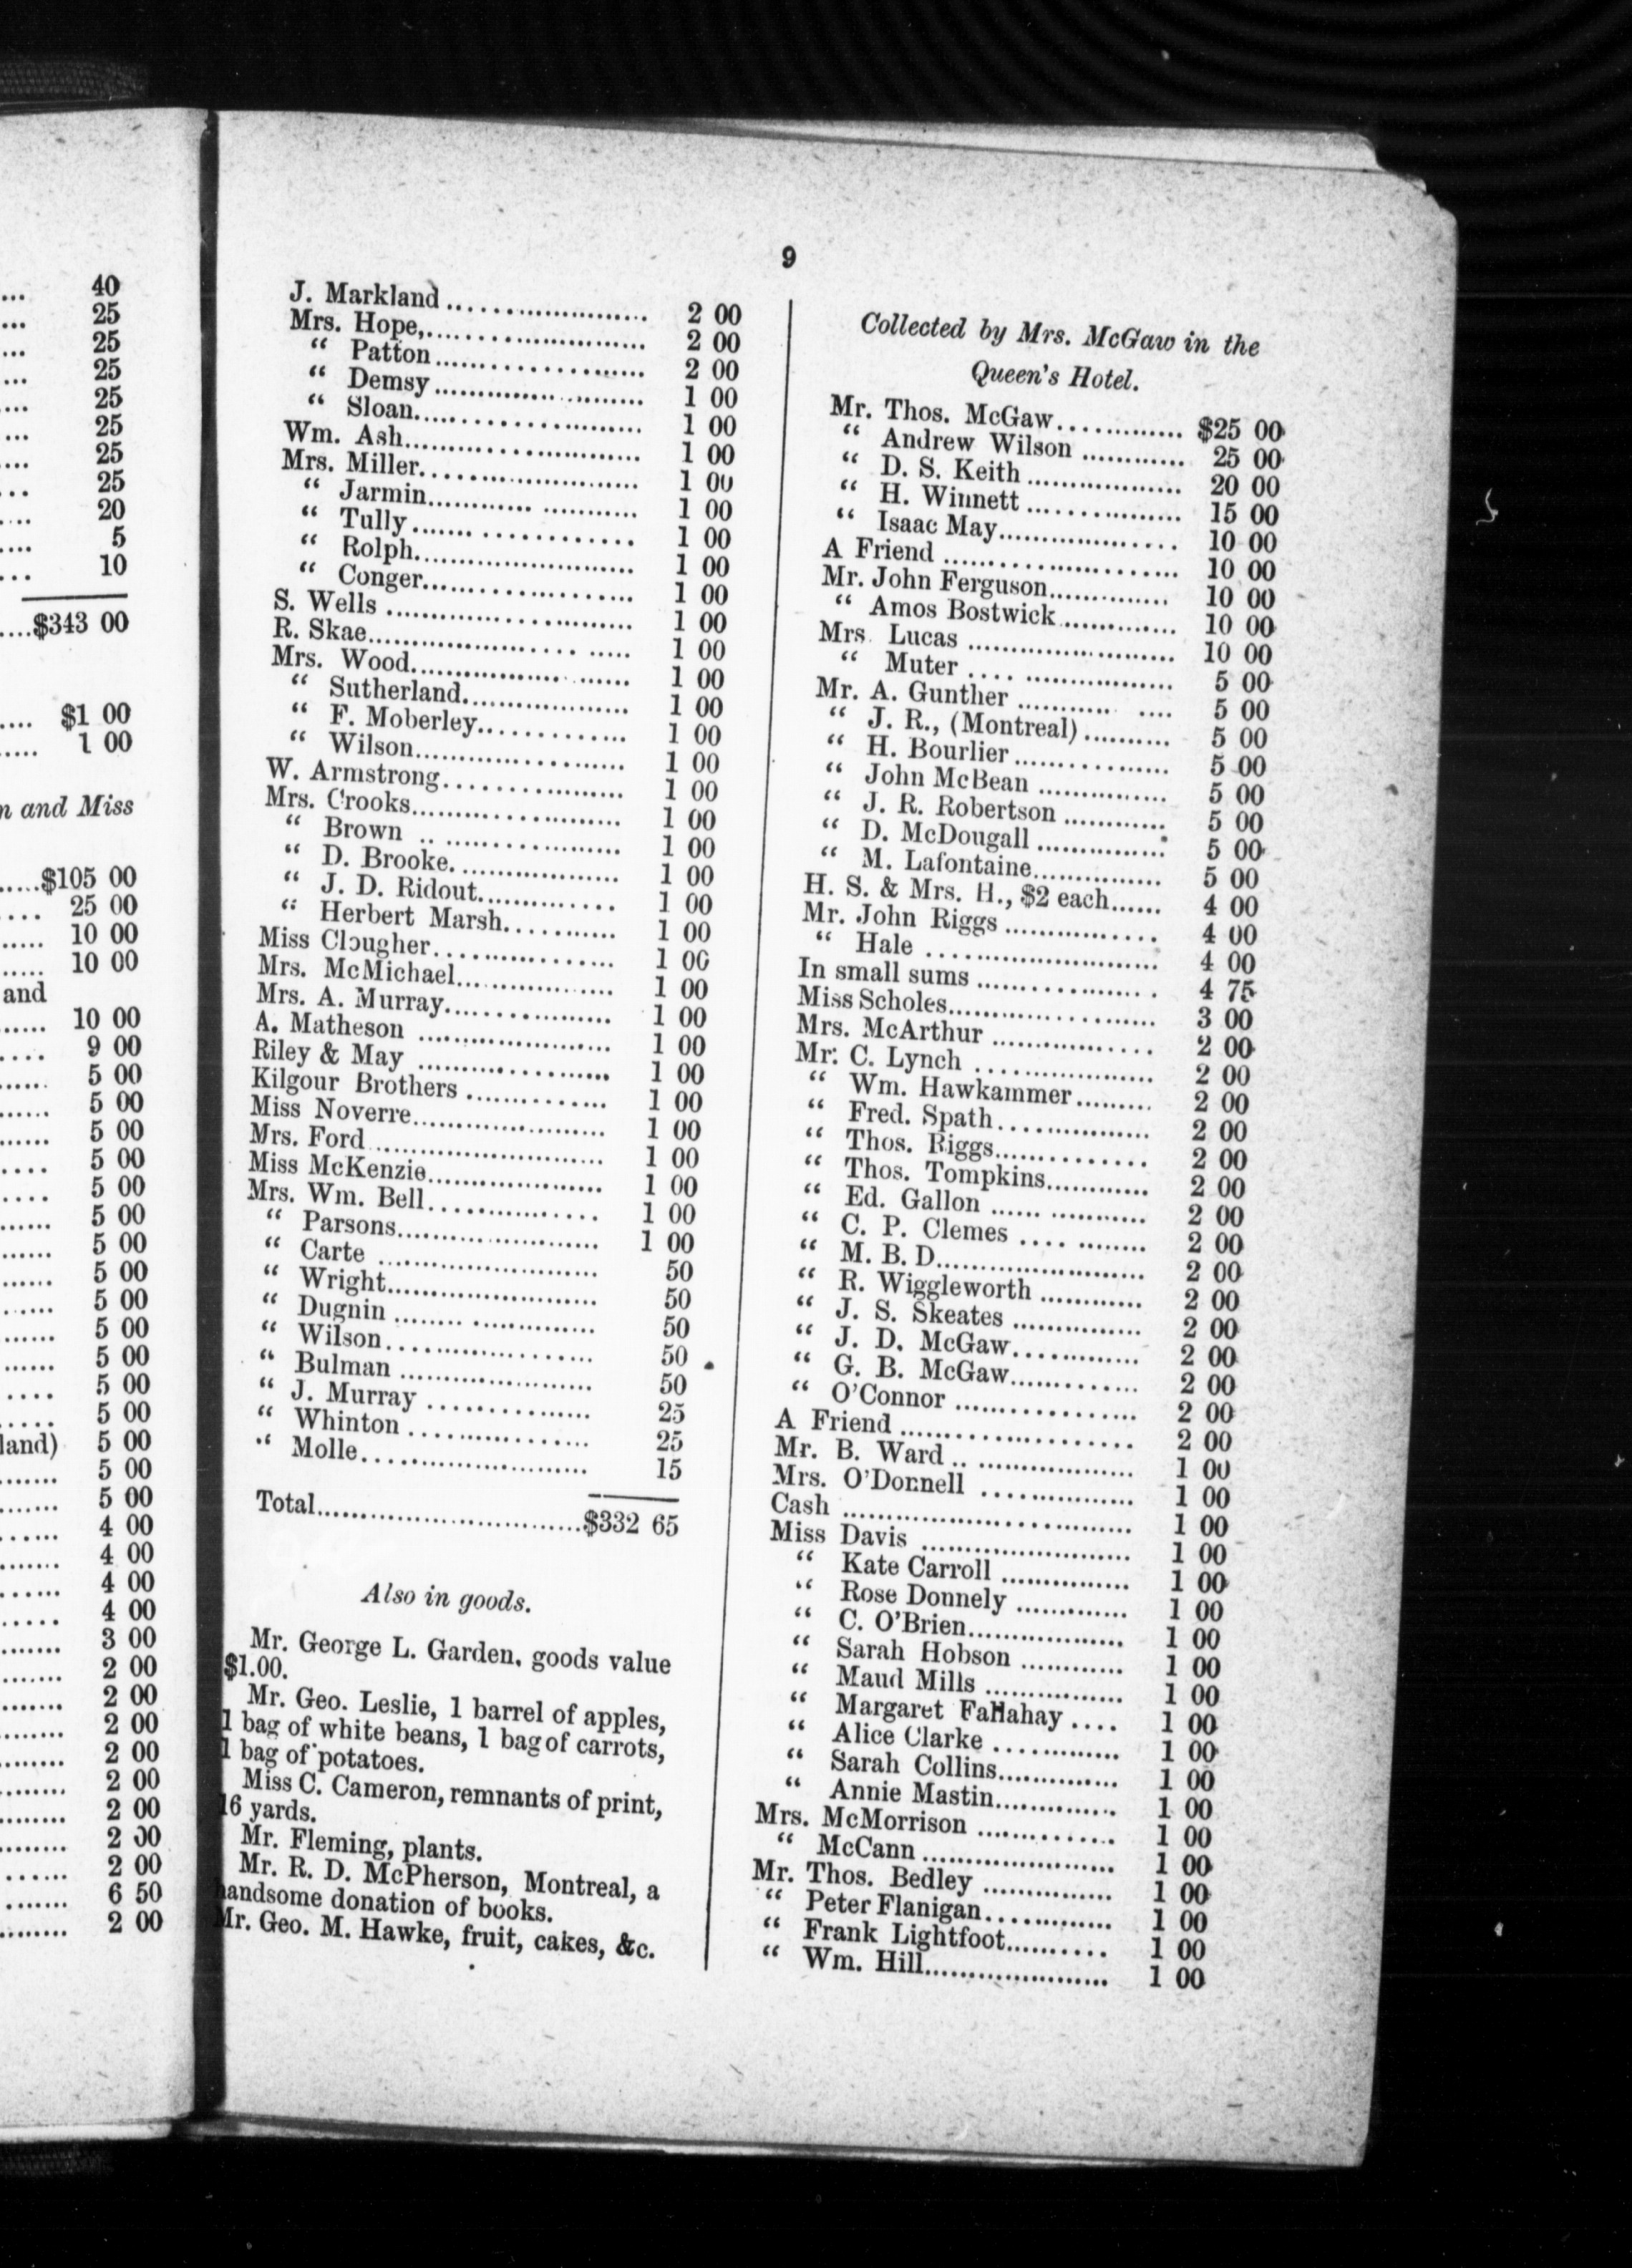 40
25
25
25
25
25
25
25
20
5
10
$343 00
$1 00
1 00
and Miss
$105 00
25 00
10 00
10 00
and
10 00
9 00
5 00
5 00
5 00
5 00
5 00
5 00
5 00
5 00
5 00
5 00
5 00
5 00
5 00
land) 5 00
5 00
5 00
4 00
4 00
4 00
4 00
3 00
2 00
2 00
2 00
2 00
2 00
2 00
2 00
2 00
6 50
2 00
9
J. Markland ........ 2 00
Mrs. Hope, ........ 2 00
“ Patton ........ 2 00
“ Demsy ........ 1 00
“ Sloan ........ 1 00
Wm. Ash ........ 1 00
Mrs. Miller ........ 1 00
“ Jarmin ........ 1 00
“ Tully ........ 1 00
“ Rolph ........ 1 00
“ Conger ........ 1 00
S. Wells ........ 1 00
R. Skae ........ 1 00
Mrs. Wood ........ 1 00
“ Sutherland ........ 1 00
“ F. Moberley ........ 1 00
“ Wilson ........ 1 00
W. Armstrong ........ 1 00
Mrs. Crooks ........ 1 00
“ Brown ........ 1 00
“ D. Brooke ........ 1 00
“ J. D. Ridout ........ 1 00
“ Herbert Marsh ........ 1 00
Miss Clougher ........ 1 00
Mrs. McMichael ........ 1 00
Mrs. A. Murray ........ 1 00
A. Matheson ........ 1 00
Riley & May ........ 1 00
Kilgour Brothers ........ 1 00
Miss Noverre ........ 1 00
Mrs. Ford ........ 1 00
Miss McKenzie ........ 1 00
Mrs. Wm. Bell ........ 1 00
“ Parsons ........ 1 00
“ Carte ........ 50
“ Wright ........ 50
“ Dugnin ........ 50
“ Wilson ........ 50
“ Bulman ........ 50
“ J. Murray ........ 25
“ Whinton ........ 25
“ Molle ........ 15
Total ........ $332 65
Also in goods.
Mr. George L. Garden, goods value
$1.00.
Mr. Geo. Leslie, 1 barrel of apples,
1 bag of white beans, 1 bag of carrots,
1 bag of potatoes.
Miss C. Cameron, remnants of print,
16 yards.
Mr. Fleming, plants.
Mr. R. D. McPherson, Montreal, a
handsome donation of books.
Mr. Geo. M. Hawke, fruit, cakes, &c.
Collected by Mrs. McGaw in the
Queen's Hotel.
Mr. Thos. McGaw ........ $25 00
“ Andrew Wilson ........ 25 00
“ D. S. Keith ........ 20 00
“ H. Winnett ........ 15 00
“ Isaac May ........ 10 00
A Friend ........ 10 00
Mr. John Ferguson ........ 10 00
“ Amos Bostwick ........ 10 00
Mrs. Lucas ........ 10 00
“ Muter ........ 5 00
Mr. A. Gunther ........ 5 00
“ J. R., (Montreal) ........ 5 00
“ H. Bourlier ........ 5 00
“ John McBean ........ 5 00
“ J. R. Robertson ........ 5 00
“ D. McDougall ........ 5 00
“ M. Lafontaine ........ 5 00
H. S. & Mrs. H., $2 each ...... 4 00
Mr. John Riggs ........ 4 00
“ Hale ........ 4 00
In small sums ........ 4 75
Miss Scholes ........ 3 00
Mrs. McArthur ........ 2 00
Mr. C. Lynch ........ 2 00
“ Wm. Hawkammer ........ 2 00
“ Fred. Spath ........ 2 00
“ Thos. Riggs ........ 2 00
“ Thos. Tompkins ........ 2 00
“ Ed. Gallon ........ 2 00
“ C. P. Clemes ........ 2 00
“ M. B. D. ........ 2 00
“ R. Wiggleworth ........ 2 00
“ J. S. Skeates ........ 2 00
“ J. D. McGaw ........ 2 00
“ G. B. McGaw ........ 2 00
“ O'Connor ........ 2 00
A Friend ........ 2 00
Mr. B. Ward ........ 1 00
Mrs. O'Donnell ........ 1 00
Cash ........ 1 00
Miss Davis ........ 1 00
“ Kate Carroll ........ 1 00
“ Rose Donnely ........ 1 00
“ C. O'Brien ........ 1 00
“ Sarah Hobson ........ 1 00
“ Maud Mills ........ 1 00
“ Margaret Fallahay .... 1 00
“ Alice Clarke ........ 1 00
“ Sarah Collins ........ 1 00
“ Annie Mastin ........ 1 00
Mrs. McMorrison ........ 1 00
“ McCann ........ 1 00
Mr. Thos. Bedley ........ 1 00
“ Peter Flanigan ........ 1 00
“ Frank Lightfoot ........ 1 00
“ Wm. Hill ........ 1 00